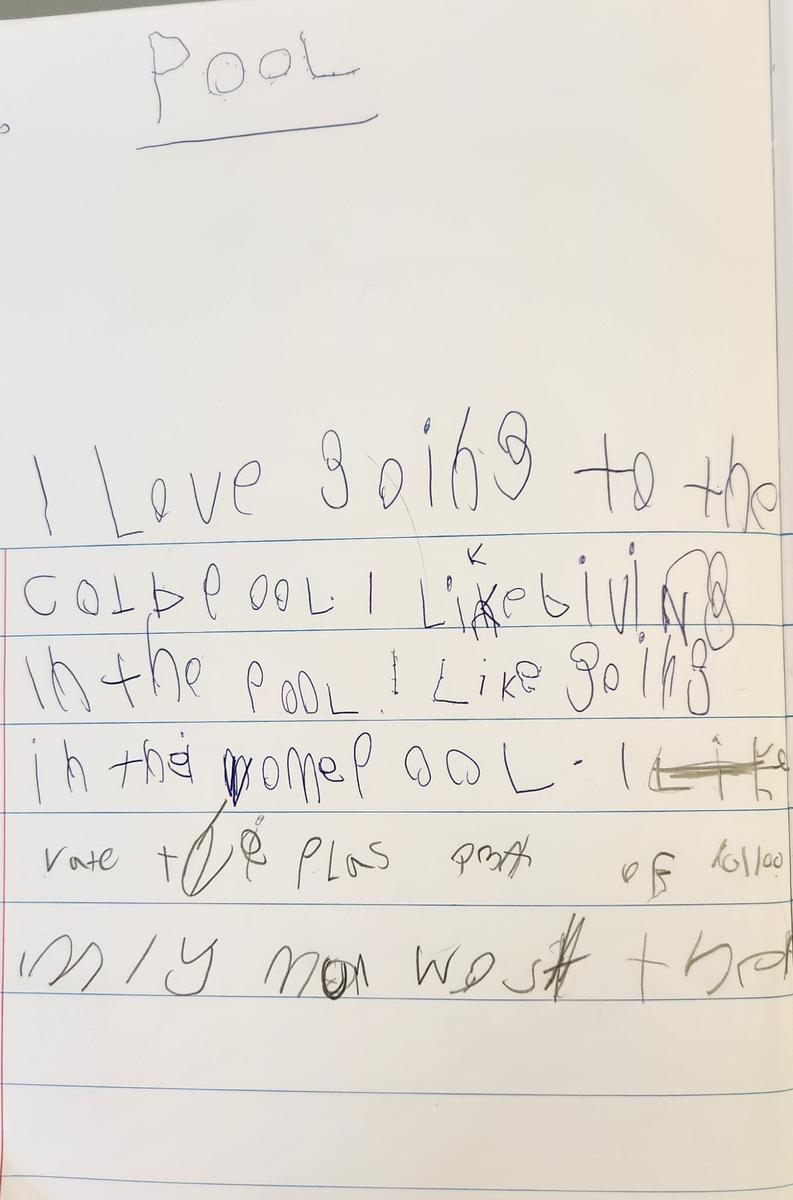 POOL
I Love going to the
COLD POOL. I Like Diving
In the POOL. I Like going
in the wome POOL. I
rate the PLas
my mom was